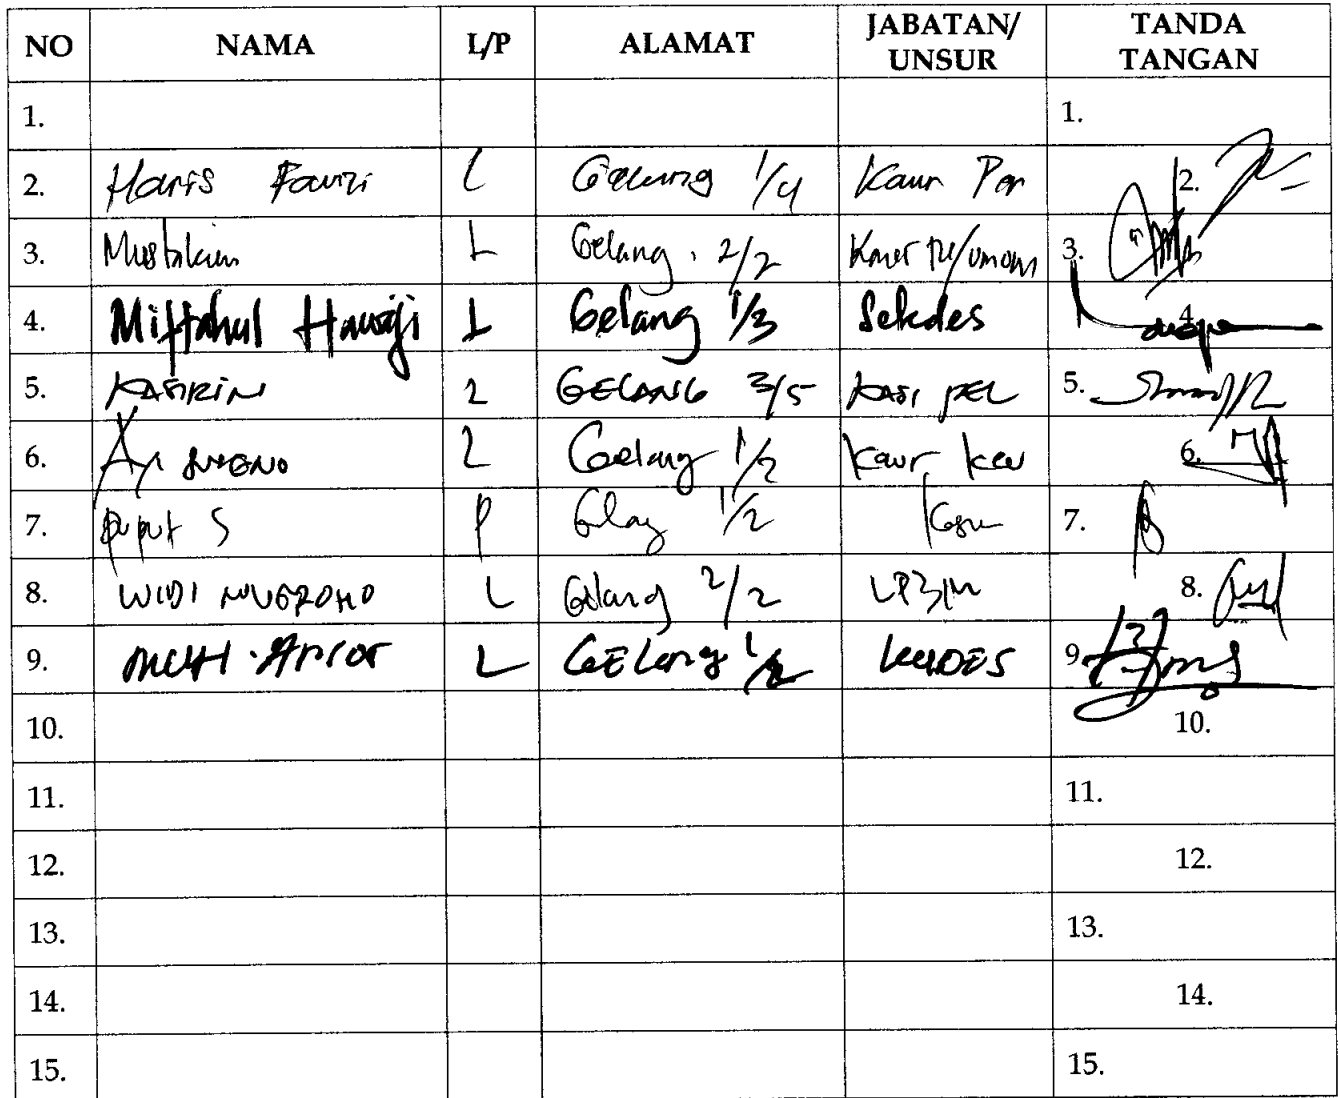 NO NAMA L/P ALAMAT JABATAN/ UNSUR TANDA TANGAN
1. 1.
2. Haris Fauzi L Gelang 1/4 Kaur Per 2.
3. Mustakim L Gelang. 2/2 Kaur TU/umum 3.
4. Miftahul Hawaji L Gelang 1/3 Sekdes 4.
5. KASIRIN L GELANG 3/5 KASI PEL 5.
6. L Gelang 1/2 Kaur keu 6.
7. puput S P Gelang 1/2 7.
8. WIDI NUGROHO L Gelang 2/2 LP3M 8.
9. MUH. Ansor L GELang 1/2 KADES 9
10. 10.
11. 11.
12. 12.
13. 13.
14. 14.
15. 15.